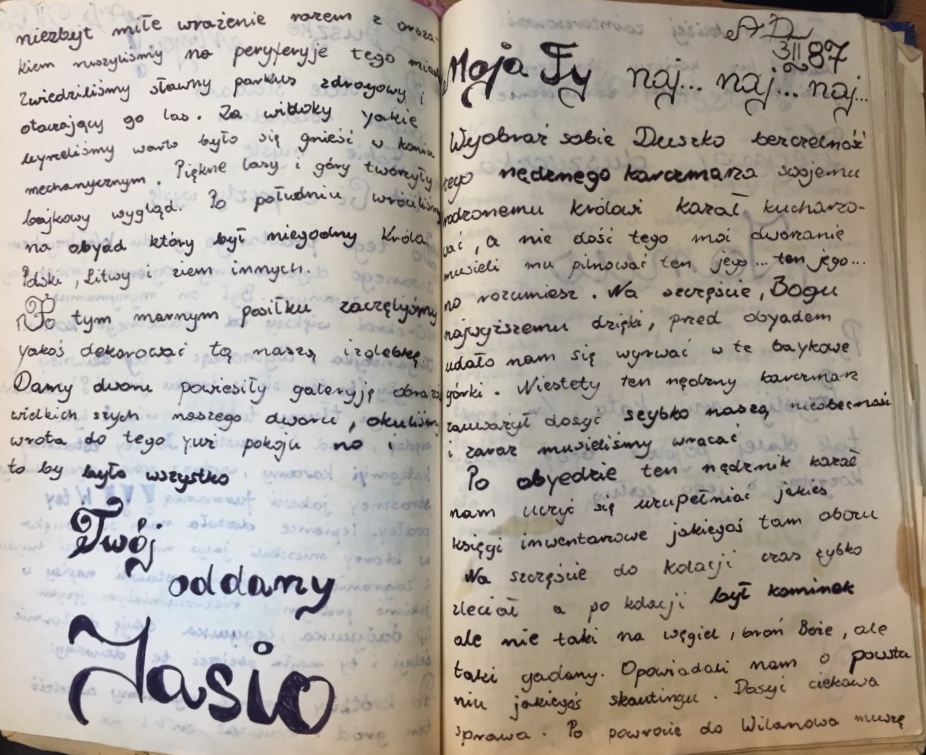 niezbyt miłe wrażenie razem z orsza-
kiem ruszyliśmy na peryferyje tego miasta
Zwiedziliśmy sławny parkus zdroyowy i
otaczający go las. Za widoky yakie
uyrzeliśmy warto było się gnieść w koniu
mechanycznym. Piękne lasy i góry tworzyły
baykowy wygląd. Po południu wróciliśmy
na obyad który był niegodny Króla
Polski, Litwy i ziem innych.
Po tym marnym posiłku zaczęlyśmy
yakoś dekorować tą naszą izdebkę.
Damy dworu powiesiły galeryję obrazów
widkich naszego dworu, okuliśmy
wrota do tego yuż pokoju no i
to by było wszystko
Twój
oddany
Jasio
A.D.
3 II 87
Moja Ty naj... naj... naj...
Wyobraź sobie Duszko bezczelność
tego nędznego karczmarza swojemu
rodzonemu królowi kazał kucharzo-
wać, a nie dość tego moi dworzanie
musieli mu pilnować ten jego... ten jego...
no rozumiesz. Na szczęście, Bogu
najwyższemu dzięki, przed obyadem
udało nam się wyrwać w te baykowe
górki. Niestety ten nędzny karczmarz
zauważył dosyć szybko naszą nieobecność
i zaraz musieliśmy wracać
Po obyedzie ten nędznik kazał
nam uczyć się uzupełniać jakieś
księgi inwentarzowe jakiegoś tam obozu
Na szczęście do kolacji czas szybko
zleciał a po kolacji był kominek
ale nie taki na węgiel, broń Boże, ale
taki gadany. Opowiadali nam o powsta
niu jakiegoś skautingu. Dosyć ciekawa
sprawa. Po powrocie do Wilanowa muszę